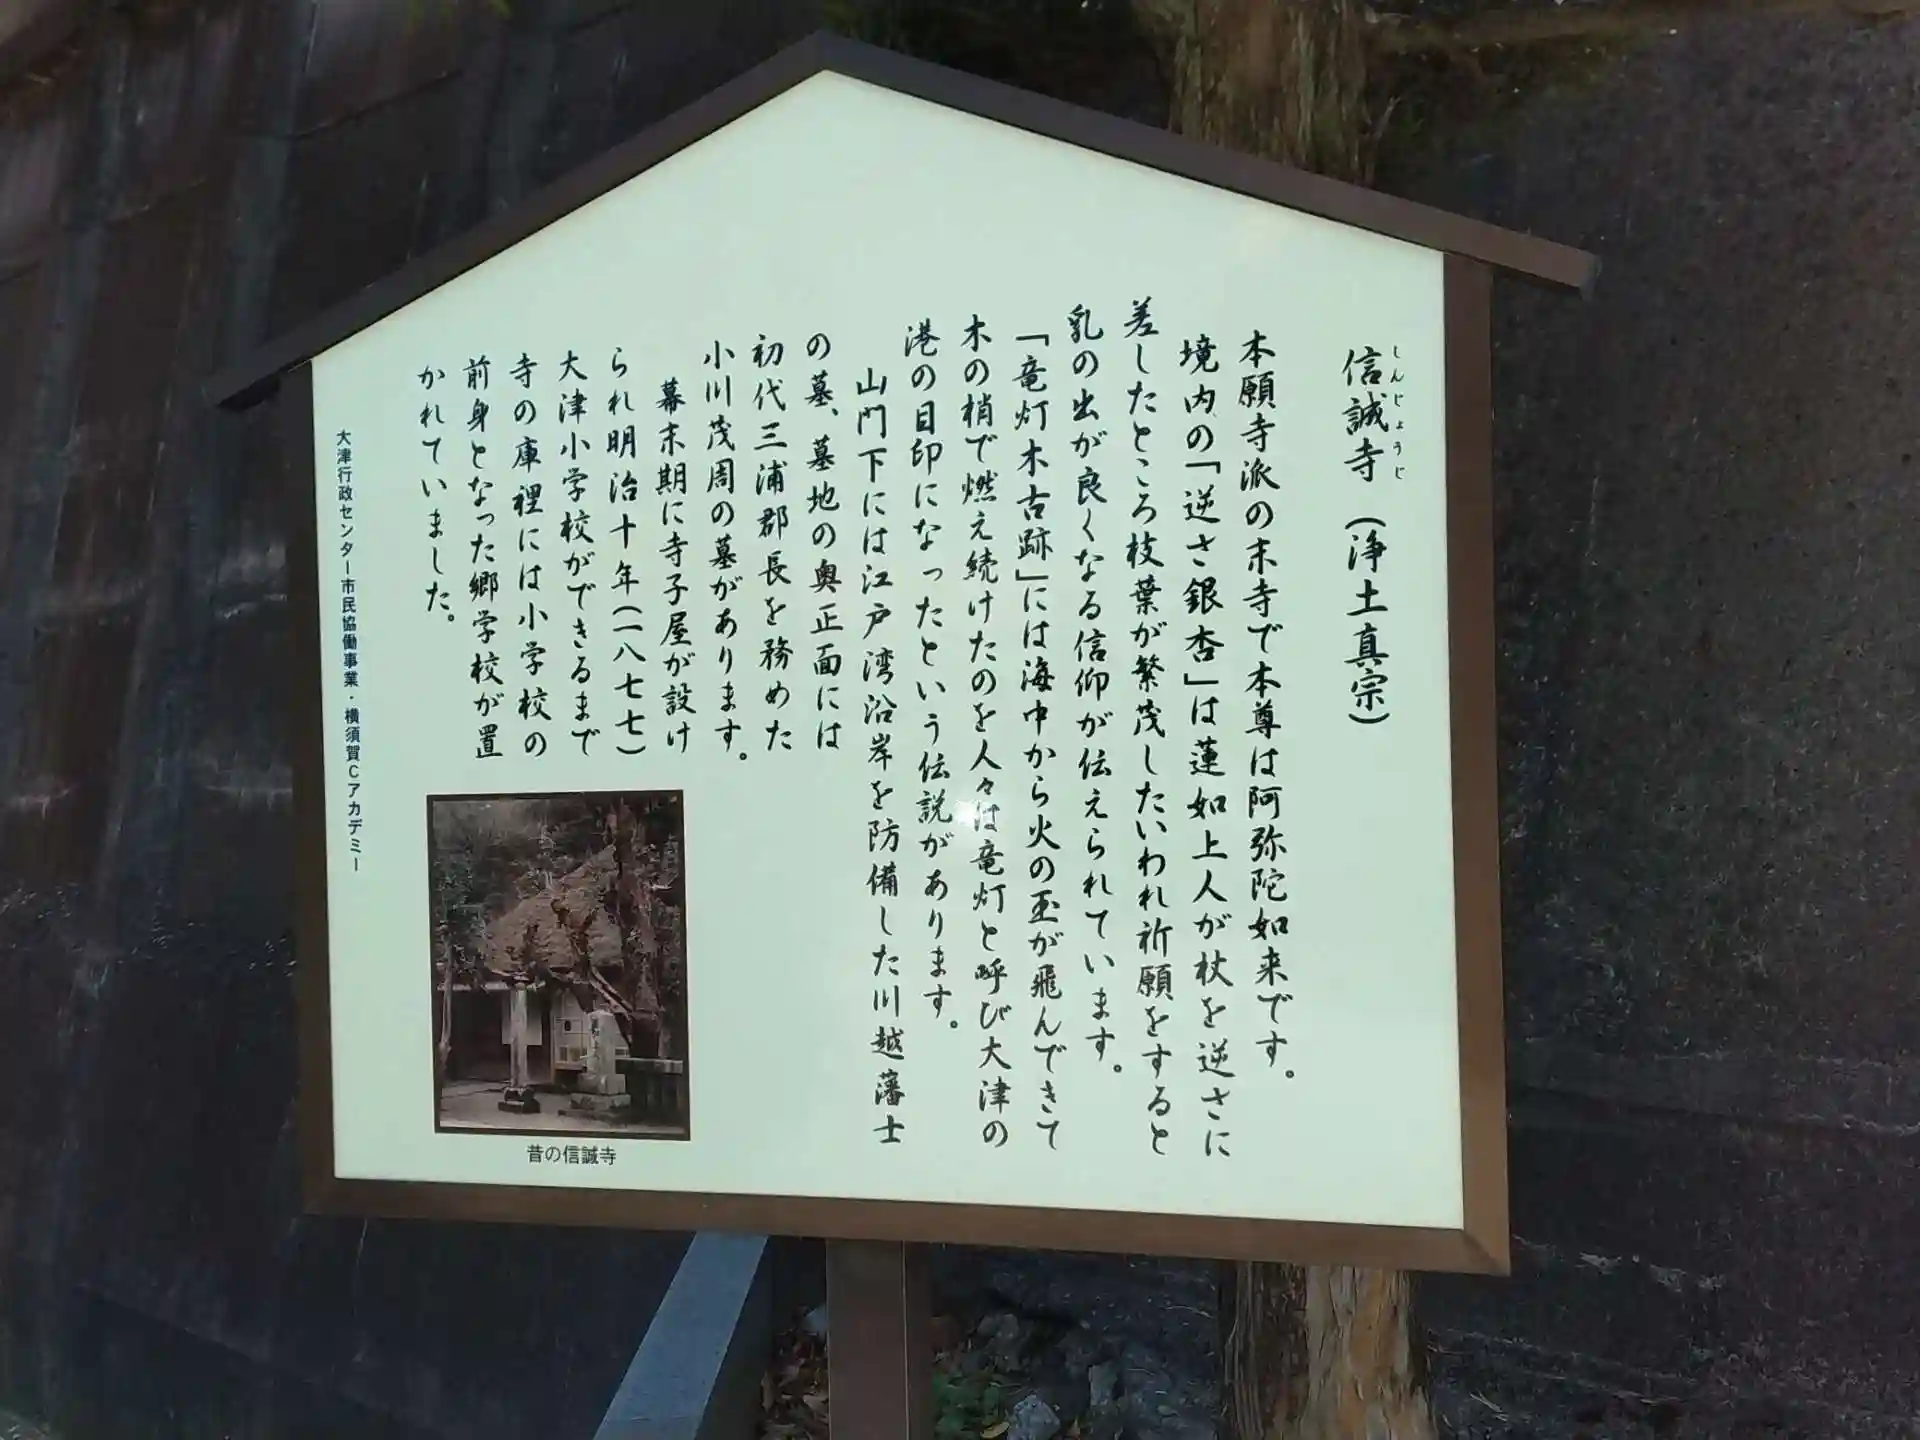 しんじょうじ
信誠寺（浄土真宗）
本願寺派の末寺で本尊は阿弥陀如来です。
境内の「逆さ銀杏」は蓮如上人が杖を逆さに
差したところ枝葉が繁茂したいわれ祈願をすると
乳の出が良くなる信仰が伝えられています。
「竜灯木古跡」には海中から火の玉が飛んできて
木の梢で燃え続けたのを人々は竜灯と呼び大津の
港の目印になったという伝説があります。
山門下には江戸湾沿岸を防備した川越藩士
の墓、墓地の奥正面には
初代三浦郡長を務めた
小川茂周の墓があります。
幕末期に寺子屋が設け
られ明治十年（一八七七）
大津小学校ができるまで
寺の庫裡には小学校の
前身となった郷学校が置
かれていました。
大津行政センター市民協働事業・横須賀Cアカデミー
昔の信誠寺